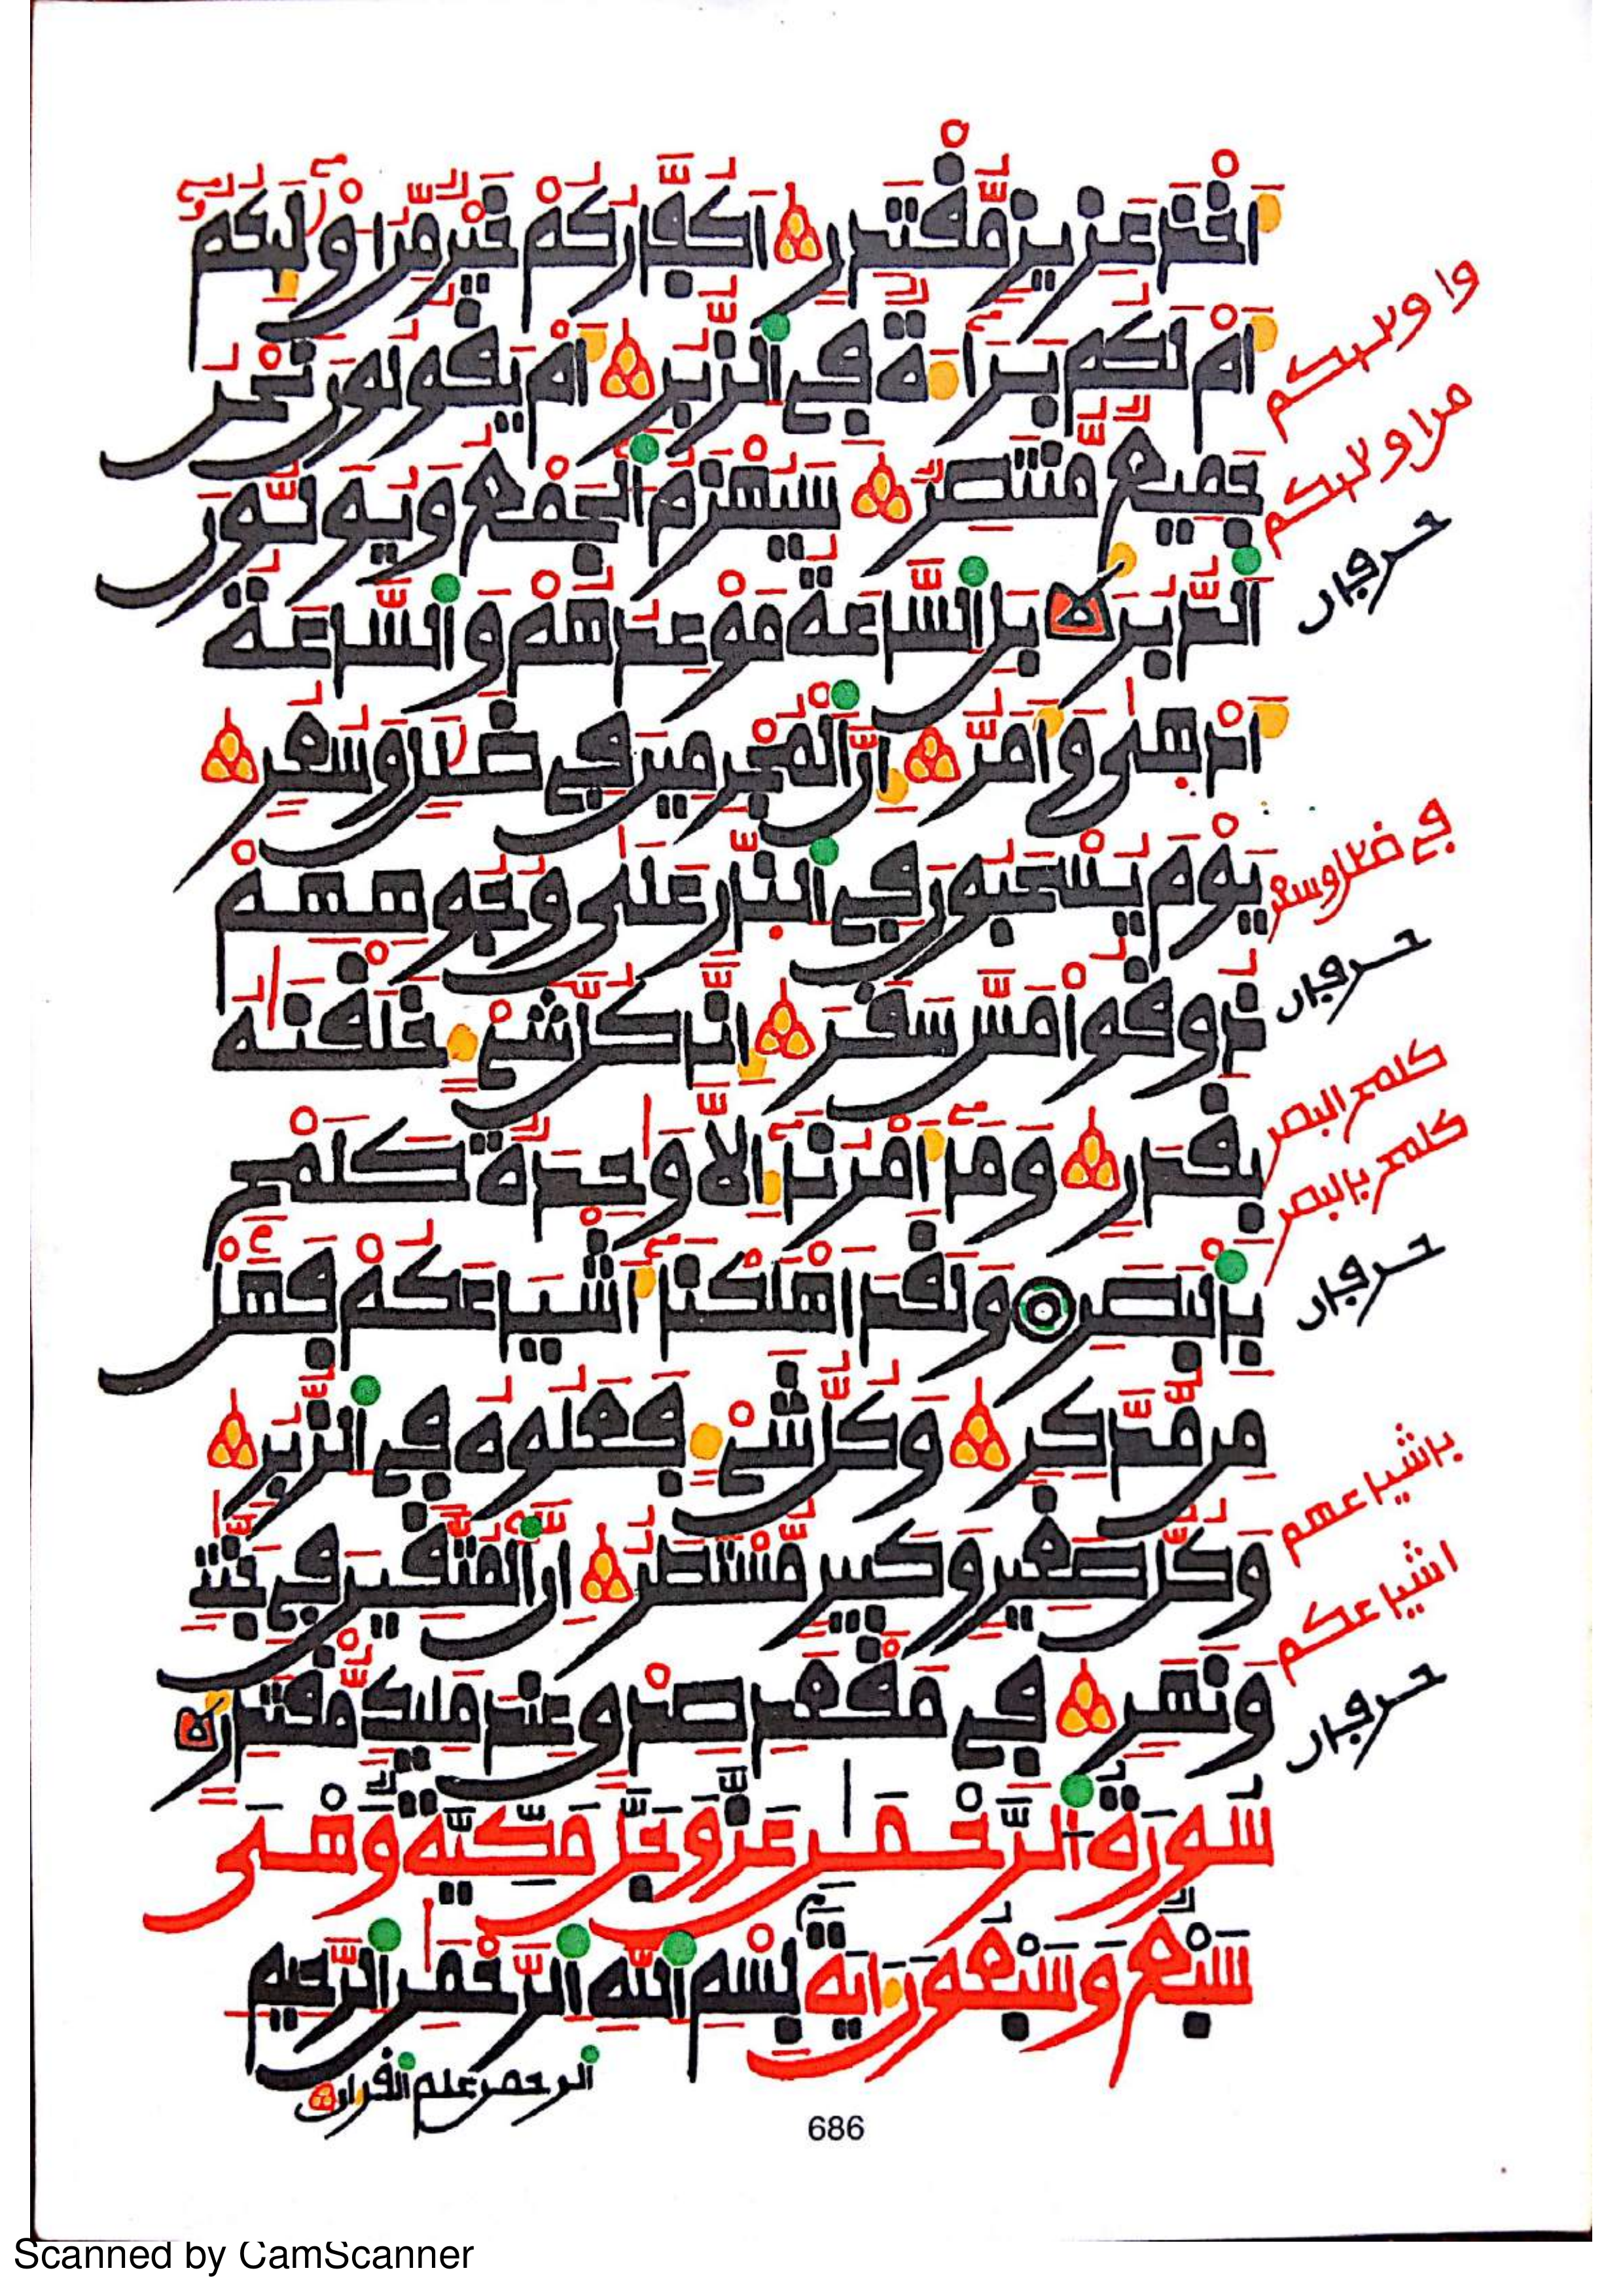 أَخْذَ عَزِيزٍ مُّقْتَدِرٍ أَكُفَّارُكُمْ خَيْرٌ مِّنْ أُوْلَٰئِكُمْ
أَمْ لَكُم بَرَآءَةٌ فِي الزُّبُرِ أَمْ يَقُولُونَ نَحْنُ
جَمِيعٌ مُّنتَصِرٌ سَيُهْزَمُ الْجَمْعُ وَيُوَلُّونَ
الدُّبُرَ بَلِ السَّاعَةُ مَوْعِدُهُمْ وَالسَّاعَةُ
أَدْهَىٰ وَأَمَرُّ إِنَّ الْمُجْرِمِينَ فِي ضَلَٰلٍ وَسُعُرٍ
يَوْمَ يُسْحَبُونَ فِي النَّارِ عَلَىٰ وُجُوهِهِمْ
ذُوقُوا مَسَّ سَقَرَ إِنَّا كُلَّ شَيْءٍ خَلَقْنَٰهُ
بِقَدَرٍ وَمَآ أَمْرُنَآ إِلَّا وَٰحِدَةٌ كَلَمْحٍ
بِالْبَصَرِ وَلَقَدْ أَهْلَكْنَآ أَشْيَاعَكُمْ فَهَلْ
مِن مُّدَّكِرٍ وَكُلُّ شَيْءٍ فَعَلُوهُ فِي الزُّبُرِ
وَكُلُّ صَغِيرٍ وَكَبِيرٍ مُّسْتَطَرٌ إِنَّ الْمُتَّقِينَ فِي جَنَّٰتٍ
وَنَهَرٍ فِي مَقْعَدِ صِدْقٍ عِندَ مَلِيكٍ مُّقْتَدِرٍ
سُورَةُ الرَّحْمَٰنِ عَزَّ وَجَلَّ مَكِّيَّةٌ وَهْيَ
سَبْعٌ وَسَبْعُونَ ءَايَةً بِسْمِ اللَّهِ الرَّحْمَٰنِ الرَّحِيمِ
الرحمن علم القرءان
وا ولٮكم
من ا ولٮكم
حرفان
في ضلل وسعر
حرفان
كلمح البصر
كلمح بالبصر
حرفان
باشياعهم
اشياعكم
حرفان
686
Scanned by CamScanner